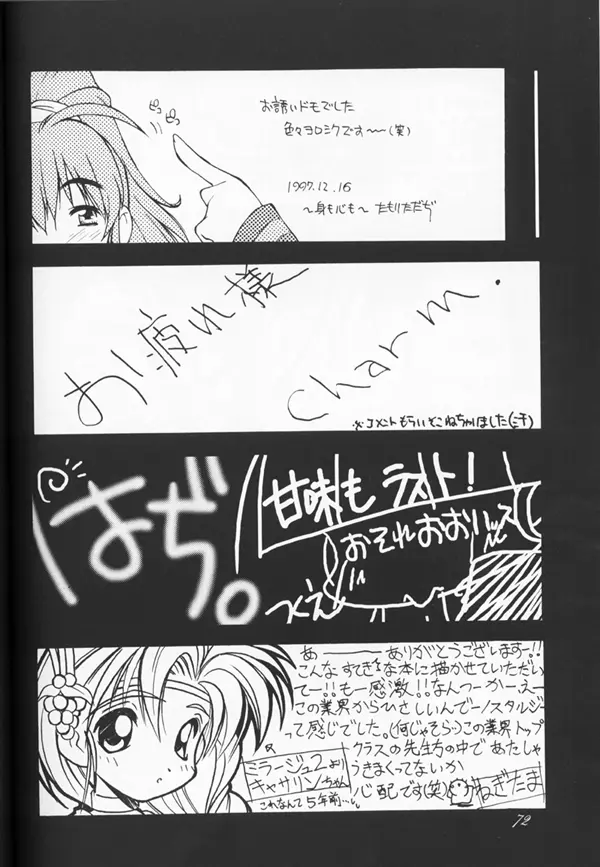 ピっ
ピっ
お誘いドモでした
色々ヨロシクです〜(笑)
1997.12.16
〜身も心も〜 たもりただぢ
お疲れ様
charm.
※コメントもらいそこねちゃいました(三千)
はぢ。
甘味も ラスト!
おそれおおいっス
あーーーありがとうございますー!!
こんな すてきな本に描かせていただい
てー!!も一感激!!なんつっかーえー
この業界からひさしいんでーノスタルジー
って感じでした。(何じゃそら)この業界トップ
クラスの先生方の中であたしゃ
うきまくってないか
心配です(笑) ねぎたま
ミラージュ2より
キャサリンちゃん
これなんて5年前…。
72